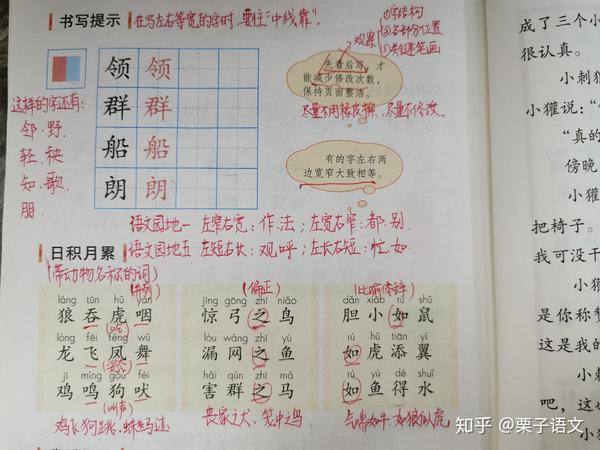 书写提示 在写左右等宽的字时,要往"中线靠"。
观察 ①字结构
②各部分位置
③关键笔画
先看后写,才
能减少修改次数,
保持页面整洁。
尽量不用橡皮擦,尽量不修改。
有的字左右两
边宽窄大致相等。
这样的字还有:
邻、野、
轻、秧
知、歌、
朋
领 领
群 群
船 船
朗 朗
语文园地一 左窄右宽:作、法;左宽右窄:都、别
语文园地五 左短右长:观、呼;左长右短:忙、如
日积月累
(带动物名称的词)
láng tūn hǔ yàn
狼吞虎咽
lóng fēi fèng wǔ
龙飞凤舞
jī míng gǒu fèi
鸡鸣狗吠
(叫声)
鸡飞狗跳、蛛丝马迹
(偏正)
jīng gōng zhī niǎo
惊弓之鸟
lòu wǎng zhī yú
漏网之鱼
hài qún zhī mǎ
害群之马
丧家之犬、笼中之鸟
(比喻修辞)
dǎn xiǎo rú shǔ
胆小如鼠
rú hǔ tiān yì
如虎添翼
rú yú dé shuǐ
如鱼得水
气喘如牛、如狼似虎
成了三个小
很认真。
小刺猬
小獾说:"
"真的
傍晚
小獾
把椅子。
我可没干
小刺
是你称赞
这是我的
小刺
吧,这也
知乎 @栗子语文